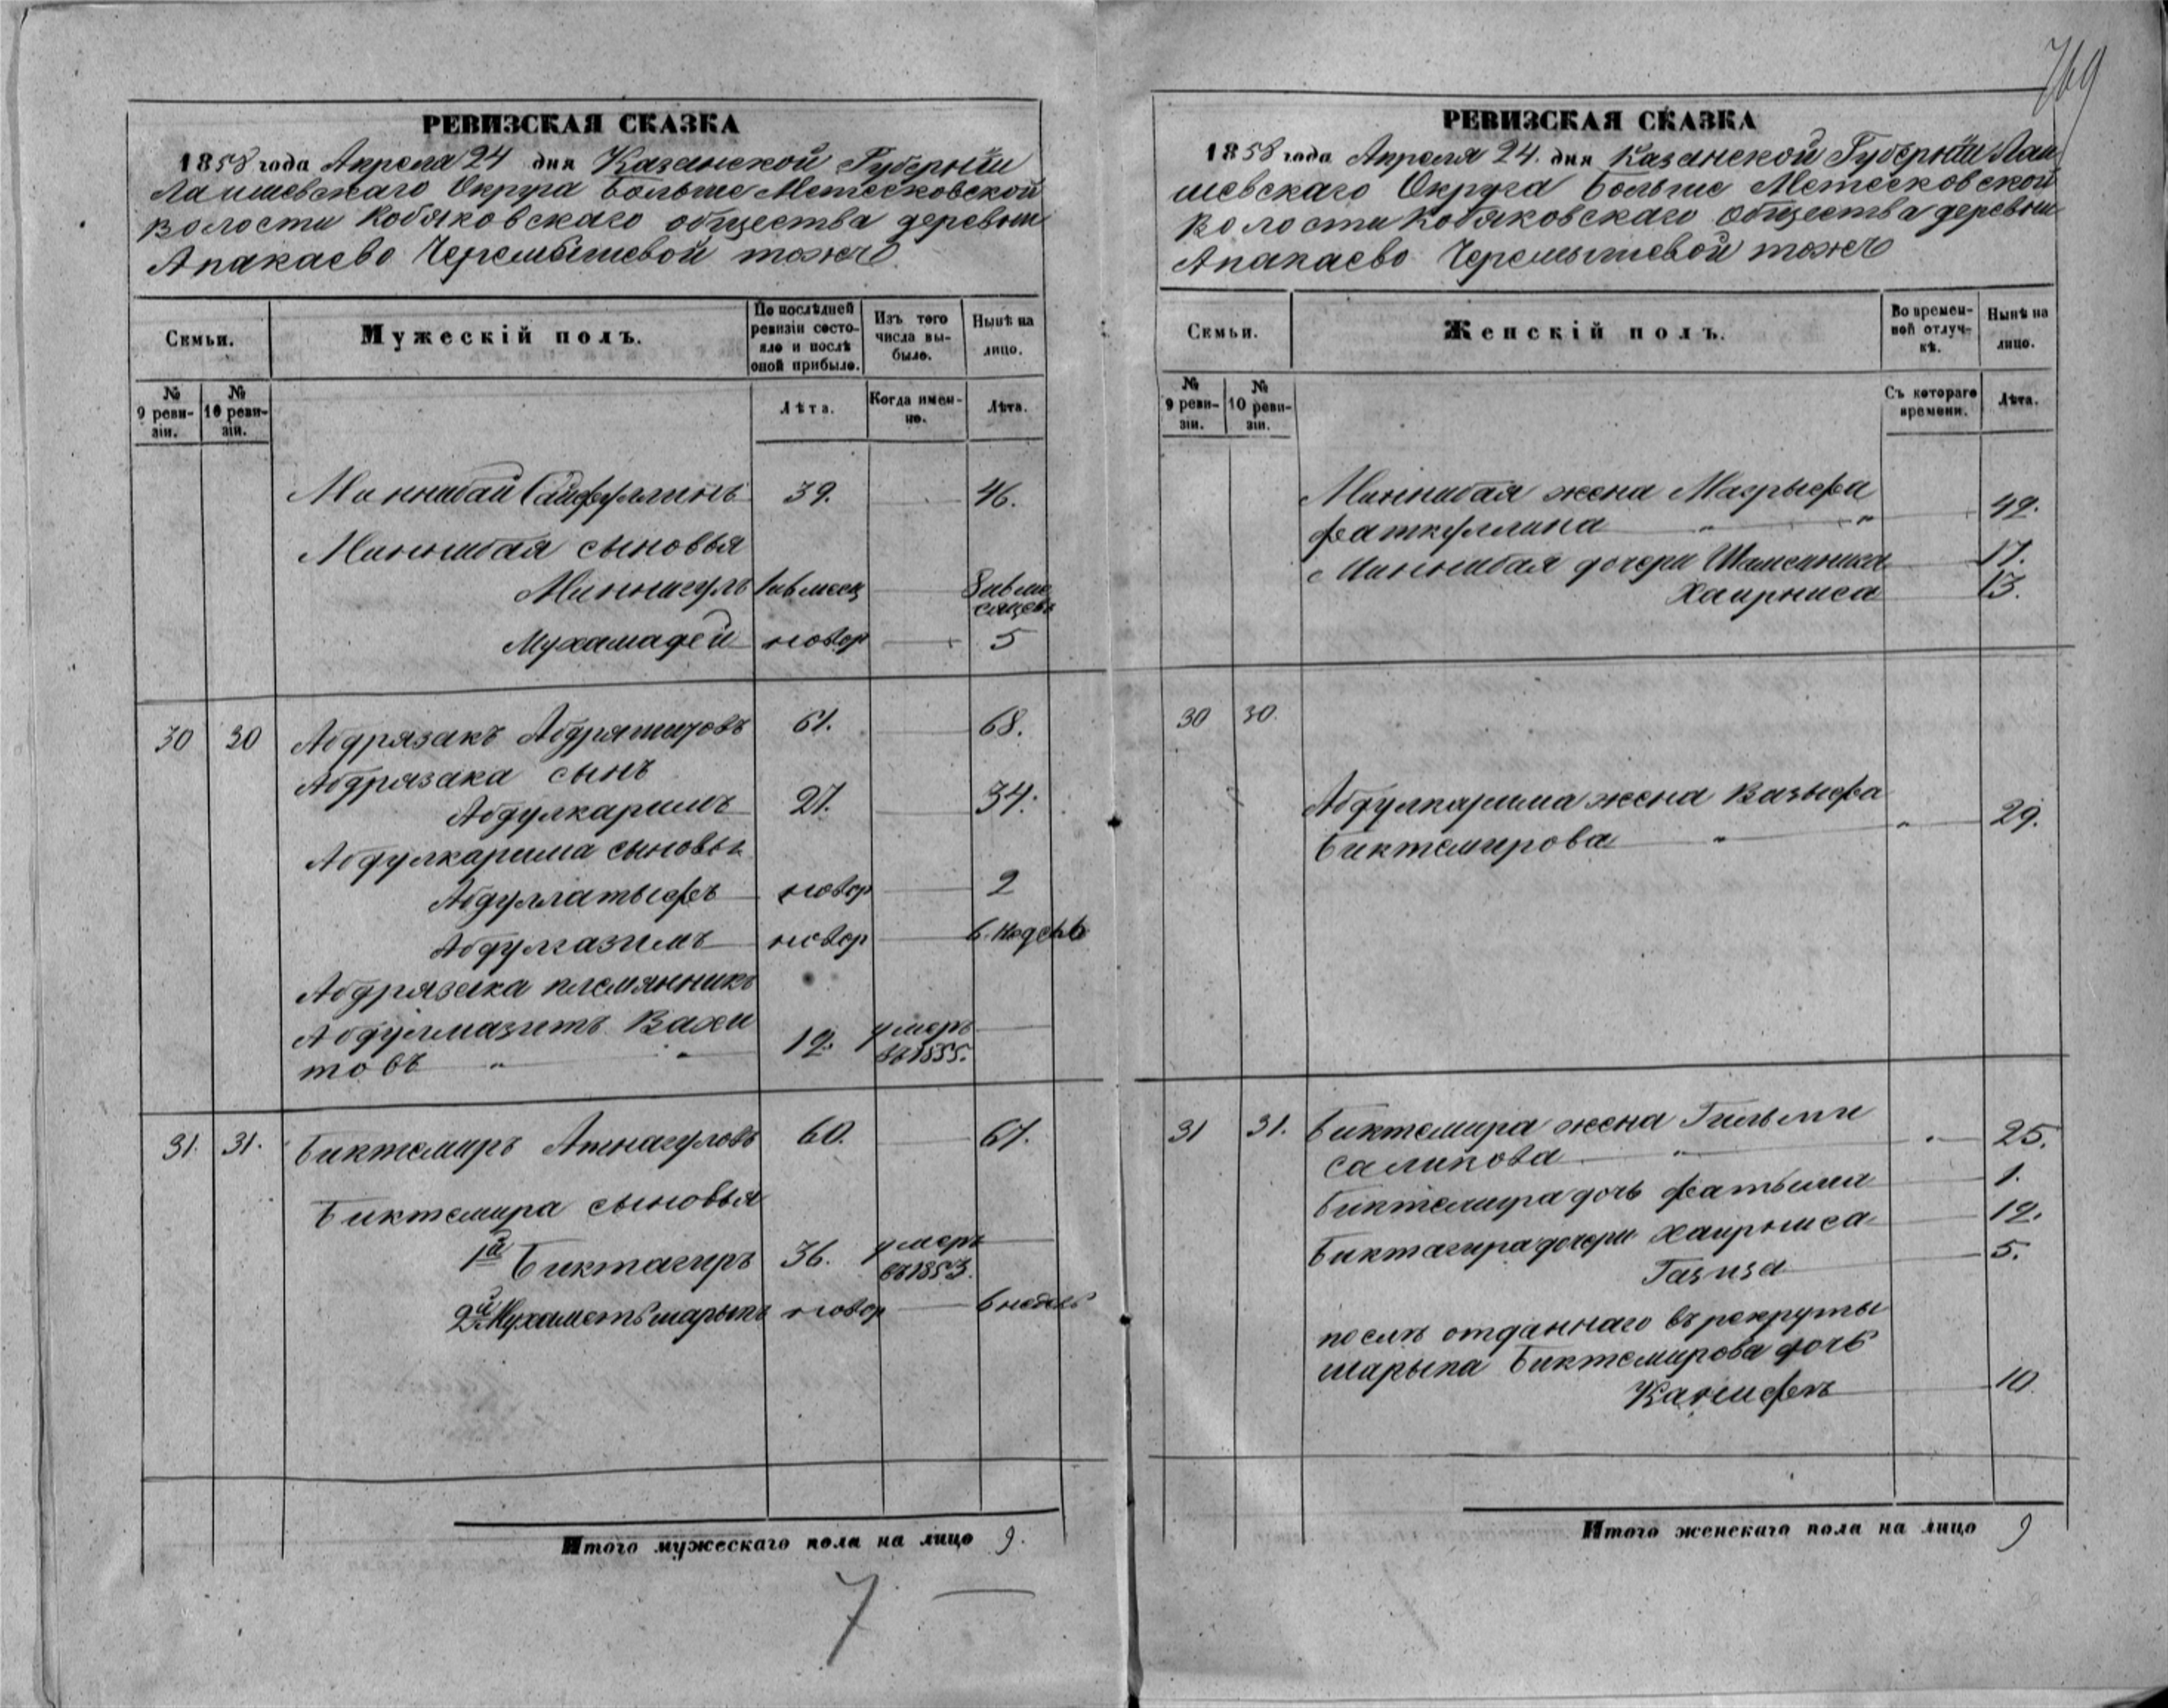 769
РЕВИЗСКАЯ СКАЗКА
1858 года Апреля 24 дня Казанской Губернии
Лаишевскаго Округа Больше Метесковской
волости Кобяковскаго общества деревни
Апакаево Черемышевой тожъ
Семьи.
Мужескій полъ.
По послѣдней ревизіи состо-
яло и послѣ оной прибыло.
Изъ того числа вы-
было.
Нынѣ на лицо.
№ 9 реви-
зіи.
№ 10 реви-
зіи.
Лѣта.
Когда имен-
но.
Лѣта.
Миннибай Сайфуллинъ 39. 46.
Миннибая сыновья
Миннигулъ
Мухамадей новор 5
30 30 Абдрязакъ Абдряшитовъ 61. 68.
Абдрязака сынъ
Абдулкаримъ 27. 34.
Абдулкарима сыновья
Абдуллатыфъ новор 2
Абдулгазимъ новор 6. недель
Абдрязака племянникъ
Абдулмазитъ Вахи
товъ 19. умеръ въ 1855.
31. 31. Биктемиръ Атнагуловъ 60. 67.
Биктемира сыновья
1й Биктагиръ 36. умеръ въ 1853.
2й Мухаметьшарыпъ новор 6 недель
Итого мужескаго пола на лицо 9.
7
РЕВИЗСКАЯ СКАЗКА
1858 года Апреля 24. дня Казанской Губернии Лаи
шевскаго Округа Больше Метесковской
волости Кобяковскаго общества деревни
Апакаево Черемышевой тожъ
Семьи.
Женскій полъ.
Во времен-
ной отлуч-
кѣ.
Нынѣ на лицо.
№ 9 реви-
зіи.
№ 10 реви-
зіи.
Съ котораго времени.
Лѣта.
Миннибая жена Магрыфа
Фаткуллина 49.
Миннибая дочери 17.
Хаирниса 13.
30 30.
Абдулкарима жена Вазыфа
Биктемирова 29.
31 31. Биктемира жена Гильми
Салихова 25.
Биктемира дочь Фатыма 1.
Биктагира дочери Хаирниса 12.
Газиза 5.
после отданнаго въ рекруты
шарыпа Биктемирова дочь
10
Итого женскаго пола на лицо 9